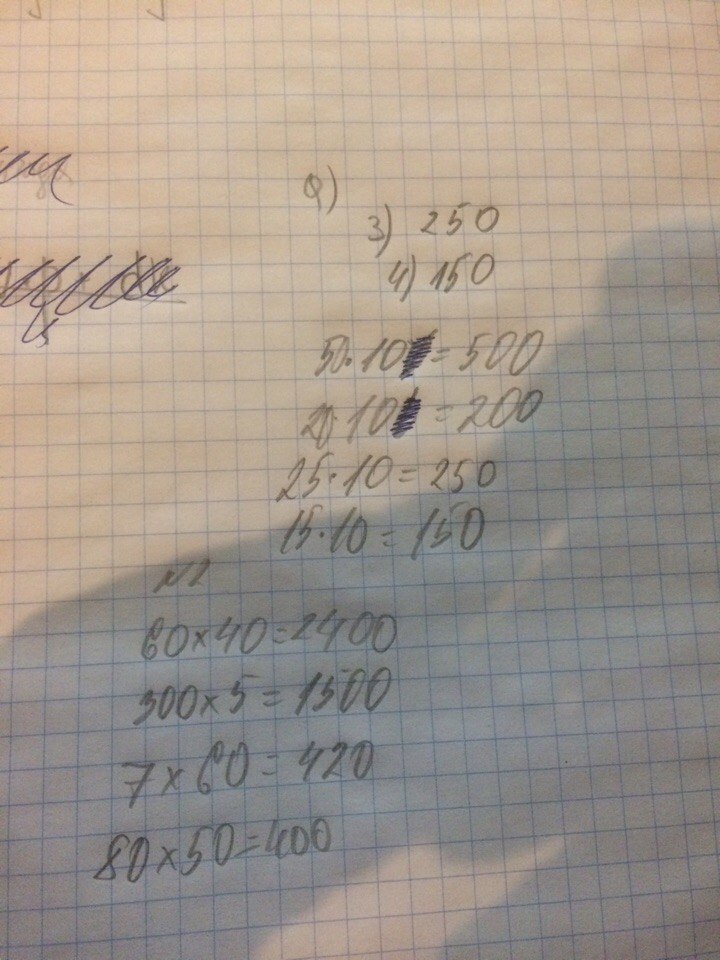 а)
3) 250
4) 150
50·10=500
20·10=200
25·10=250
15·10=150
№2
60×40=2400
300×5=1500
7×60=420
80×50=400